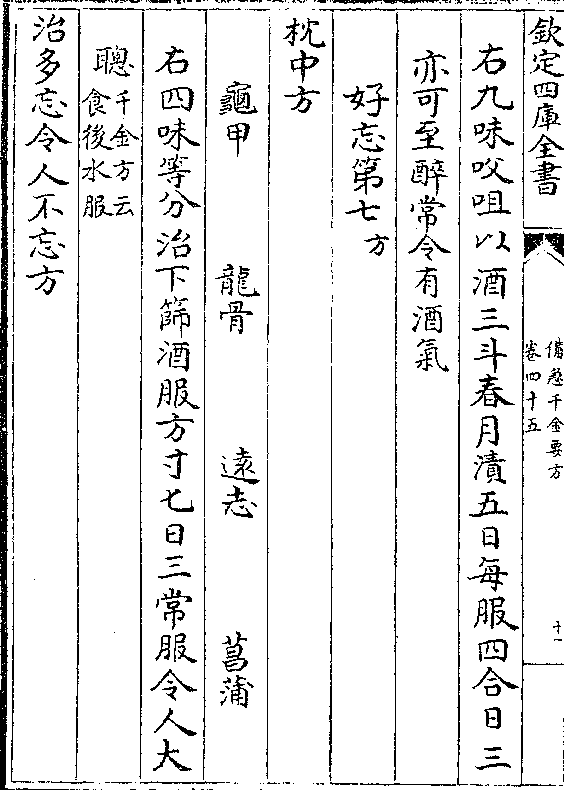 欽定四庫全書
備急千金要方
卷四十五
十一
右九味㕮咀以酒三斗春月漬五日每服四合日三
亦可至醉常令有酒氣
好忘第七方
枕中方
龜甲 龍骨 遠志 菖蒲
右四味等分治下篩酒服方寸匕日三常服令人大
聰千金方云食後水服
治多忘令人不忘方